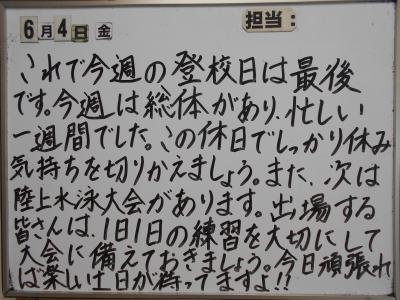 6月4日金 担当:
これで今週の登校日は最後
です。今週は総体があり、忙しい
一週間でした。この休日でしっかり休み
気持ちを切りかえましょう。また、次は
陸上水泳大会があります。出場する
皆さんは、1日1日の練習を大切にして
大会に備えておきましょう。今日頑張れ
ば楽しい土日が待ってますよ!!